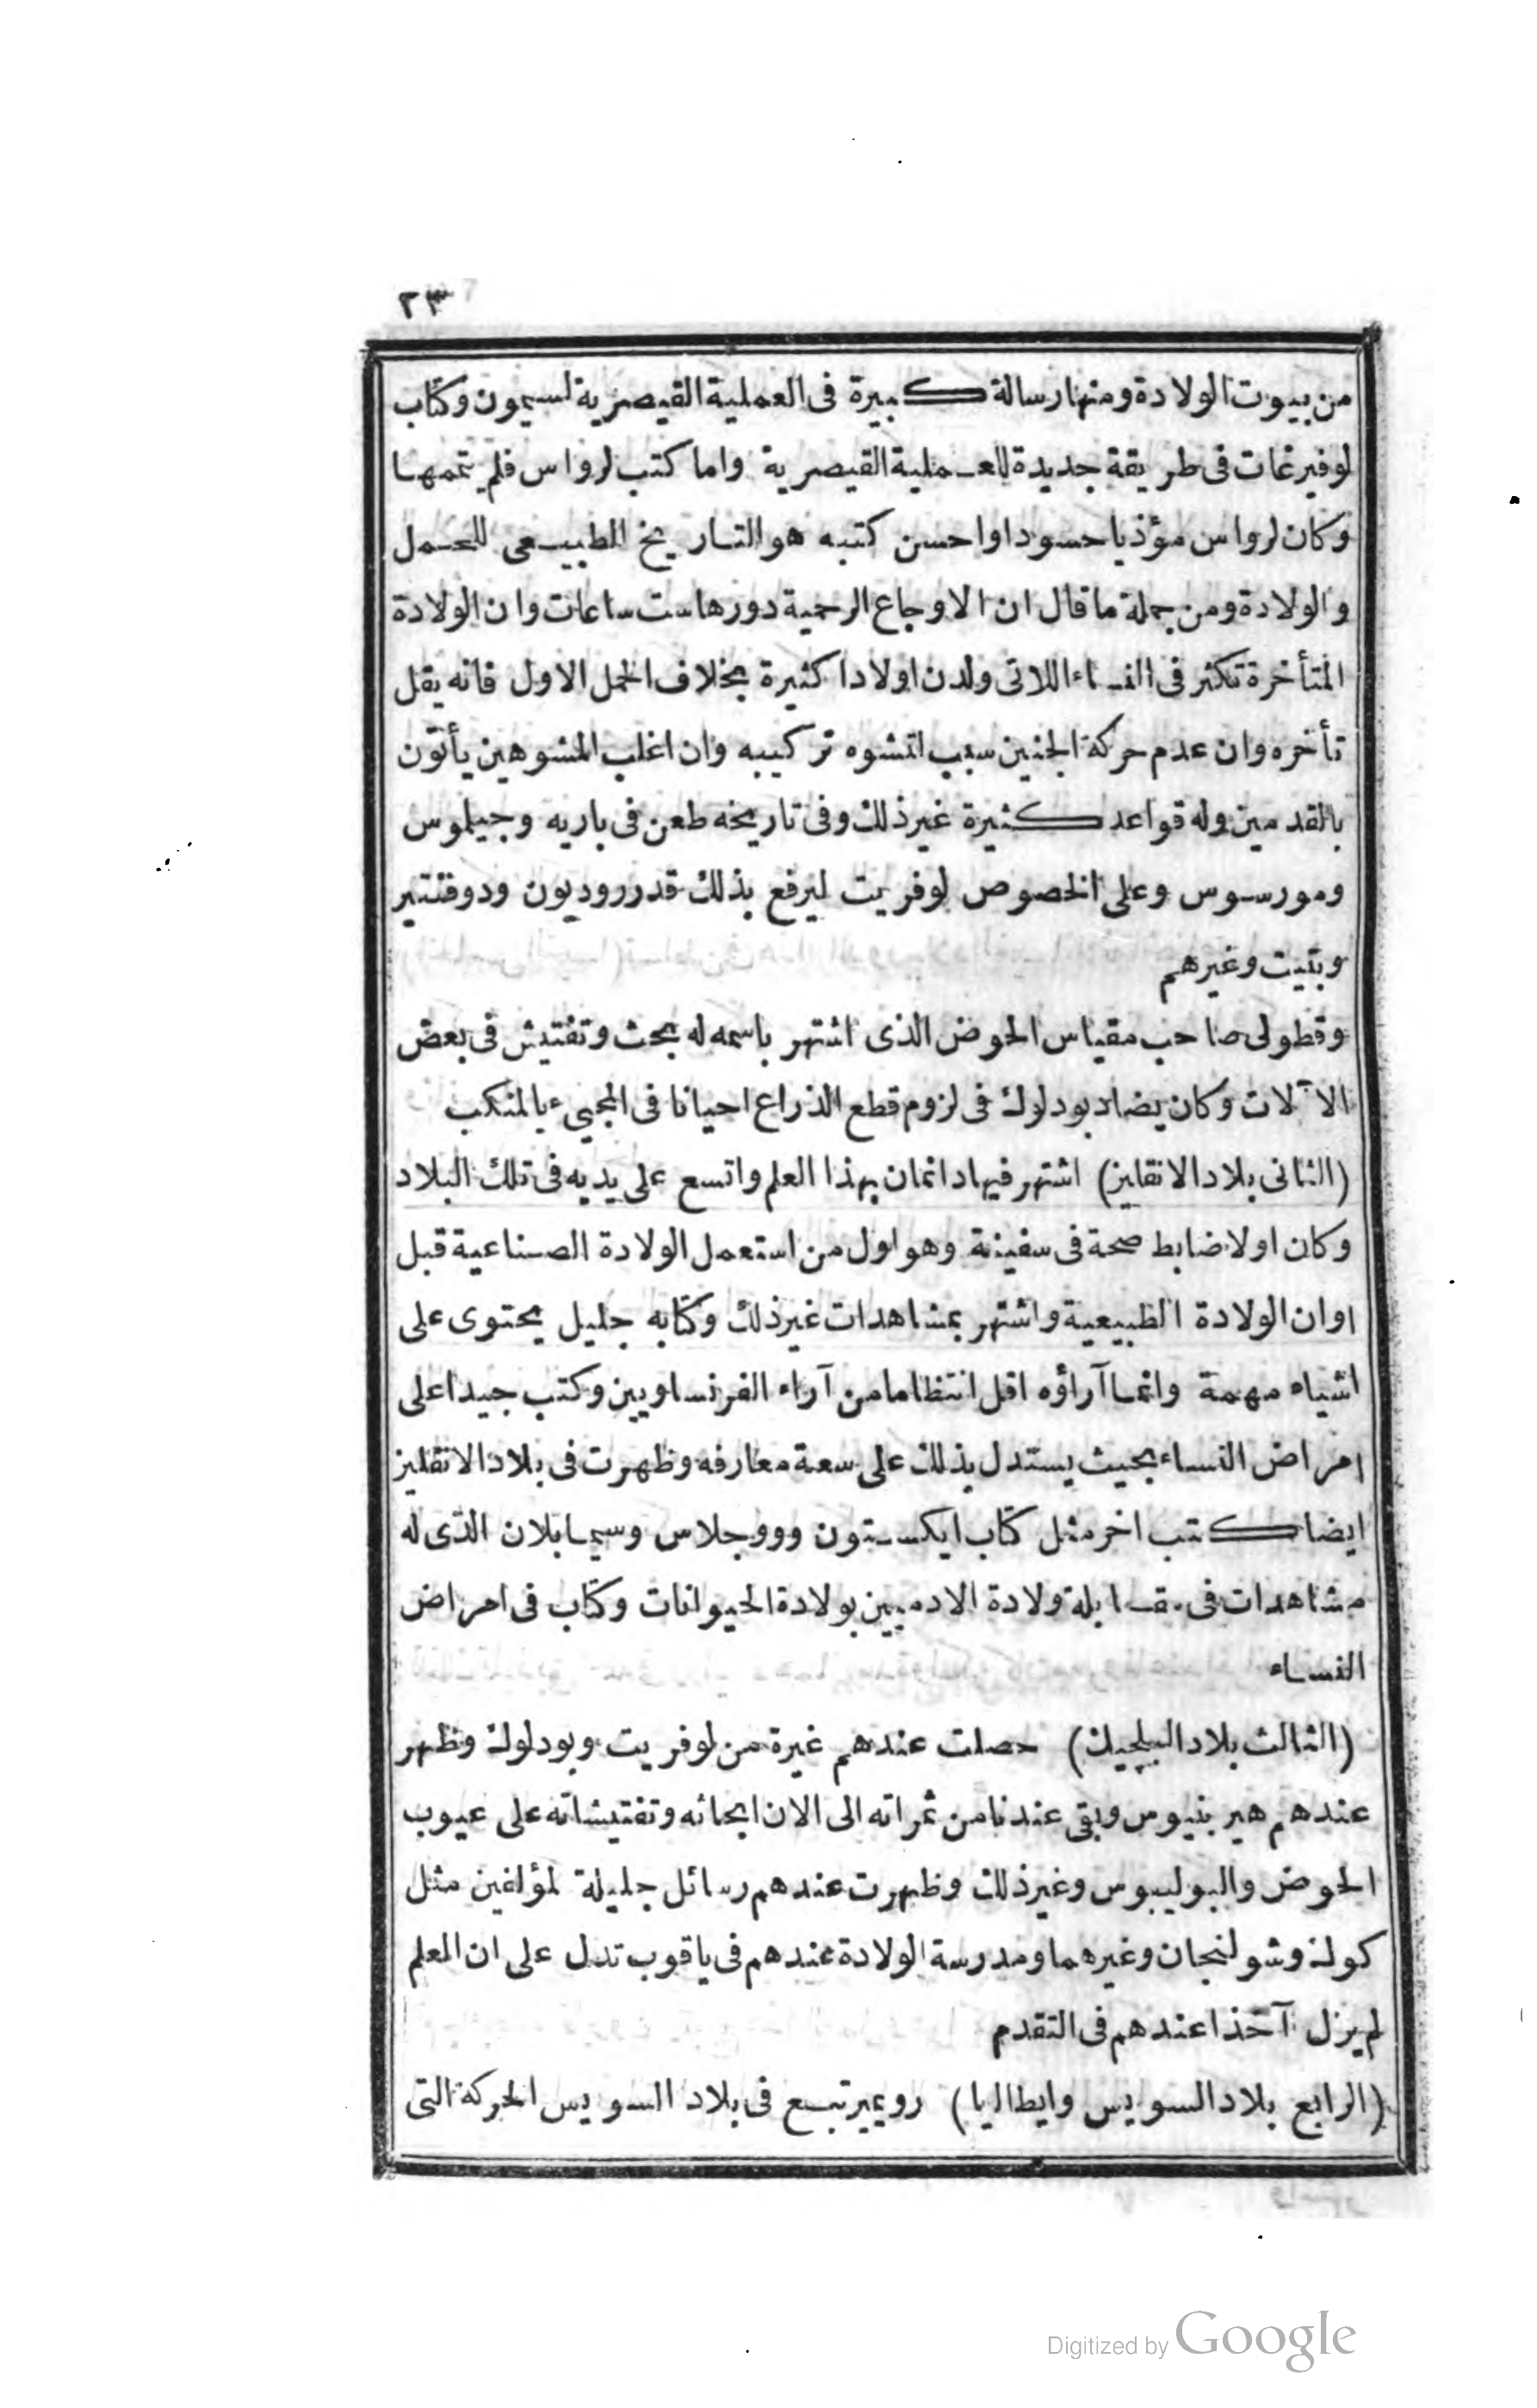 ٢٣
من بيوت الولادة ومنها رسالة كبيرة فى العملية القيصرية لسيمون وكتاب
لوفيرغات فى طريقة جديدة للعملية القيصرية واما كتب لرواس فلم يتمهما
وكان لرواس مؤذيا حسودا واحسن كتبه هو التاريخ الطبيعى للحمل
والولادة ومن جملة ما قال ان الاوجاع الرحمية دورها ست ساعات وان الولادة
المتأخرة تكثر فى النساء اللاتى ولدن اولادا كثيرة بخلاف الحمل الاول فانه يقل
تأخره وان عدم حركة الجنين سبب لتشوه تركيبه وان اغلب المشوهين يأتون
بالقدمين وله قواعد كثيرة غير ذلك وفى تاريخه طعن فى باريه وجيلموس
ومورسوس وعلى الخصوص لوفريت ليرفع بذلك قدر روديون ودوفنتير
وبتيت وغيرهم
وقطولى صاحب مقياس الحوض الذى اشتهر باسمه له بحث وتفتيش فى بعض
الآلات وكان يضاد بودلوك فى لزوم قطع الذراع احيانا فى المجىء بالمنكب
(الثانى بلاد الانقليز) اشتهر فيها دانمان بهذا العلم واتسع على يديه فى تلك البلاد
وكان اولا ضابط صحة فى سفينة وهو اول من استعمل الولادة الصناعية قبل
اوان الولادة الطبيعية واشتهر بمشاهدات غير ذلك وكتابه جليل يحتوى على
اشياء مهمة وانما آراؤه اقل انتظاما من آراء الفرنساويين وكتب جيدا على
امراض النساء بحيث يستدل بذلك على سعة معارفه وظهرت فى بلاد الانقليز
ايضا كتب اخر مثل كتاب ايكستون وووجلاس وسيما بلان الذى له
مشاهدات فى مقابلة ولادة الادميين بولادة الحيوانات وكتاب فى امراض
النساء
(الثالث بلاد البلجيك) حصلت عندهم غيرة من لوفريت وبودلوك وظهر
عندهم هيربنيوس وبقى عندنا من ثمراته الى الان ابحاثه وتفتيشاته على عيوب
الحوض والبوليبوس وغير ذلك وظهرت عندهم رسائل جليلة لمؤلفين مثل
كوك وشولنجان وغيرهما ومدرسة الولادة عندهم فى ياقوب تدل على ان المعلم
لم يزل آخذا عندهم فى التقدم
(الرابع بلاد السويس وايطاليا) رويمير تبع فى بلاد السويس الحركة التى
Digitized by Google